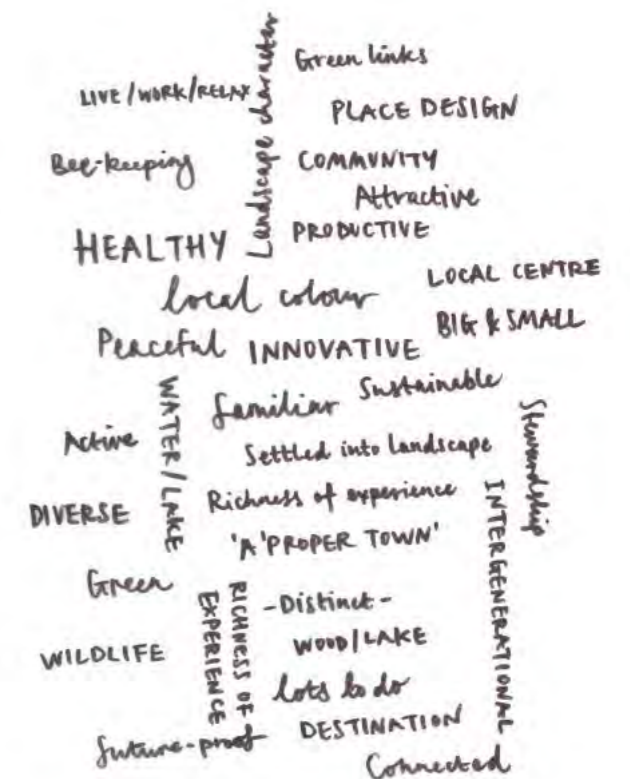 Landscape character
Green links
LIVE/WORK/RELAX
PLACE DESIGN
Bee-keeping
COMMUNITY
Attractive
HEALTHY
PRODUCTIVE
local colour
LOCAL CENTRE
Peaceful
INNOVATIVE
BIG & SMALL
WATER/LAKE
familiar
Sustainable
Stewardship
Active
Settled into landscape
DIVERSE
Richness of experience
INTERGENERATIONAL
'A 'PROPER TOWN'
Green
RICHNESS OF
EXPERIENCE
-Distinct-
WILDLIFE
WOOD/LAKE
lots to do
future-proof
DESTINATION
Connected